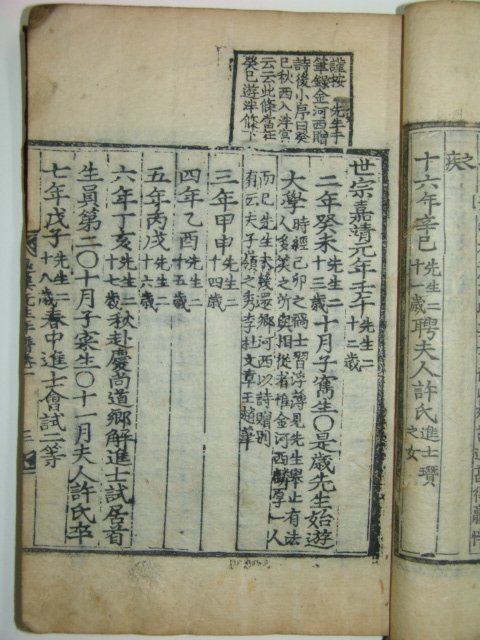 疾
十六年辛巳 先生二十一歲 聘夫人許氏 進士瓚之女
謹按 先生手
筆錄金河西贈
詩後小序曰癸
巳秋西入泮宮
云云此條當在
癸巳遊泮條下
世宗嘉靖元年壬午 先生二十二歲
二年癸未 先生二十三歲 十月子寯生〇是歲先生始遊
大學 時經己卯之禍士習浮薄見先生擧止有法人多笑之所與相從者惟金河西麟厚一人
而已先生還鄕河西以詩贈別有云夫子嶺之秀李杜文章王趙筆
三年甲申 先生二十四歲
四年乙酉 先生二十五歲
五年丙戌 先生二十六歲
六年丁亥 先生二十七歲 秋赴慶尙道鄕解進士試居首
生員第二〇十月子寀生〇十一月夫人許氏卒
七年戊子 先生二十八歲 春中進士會試二等